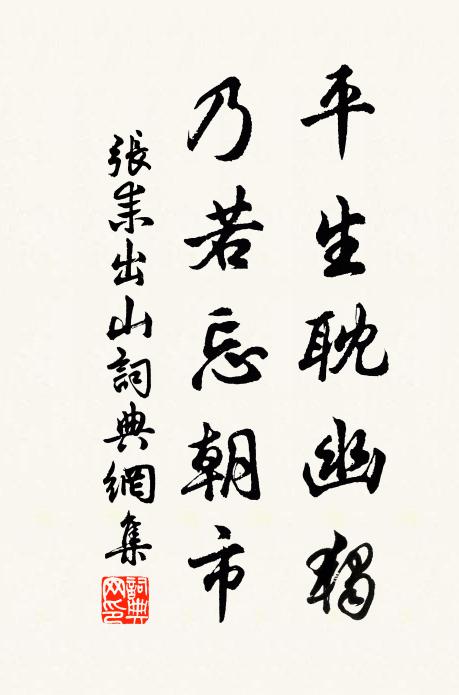 平生耽幽獨
乃若忘朝市
張耒出山詞典網集
詞典网印